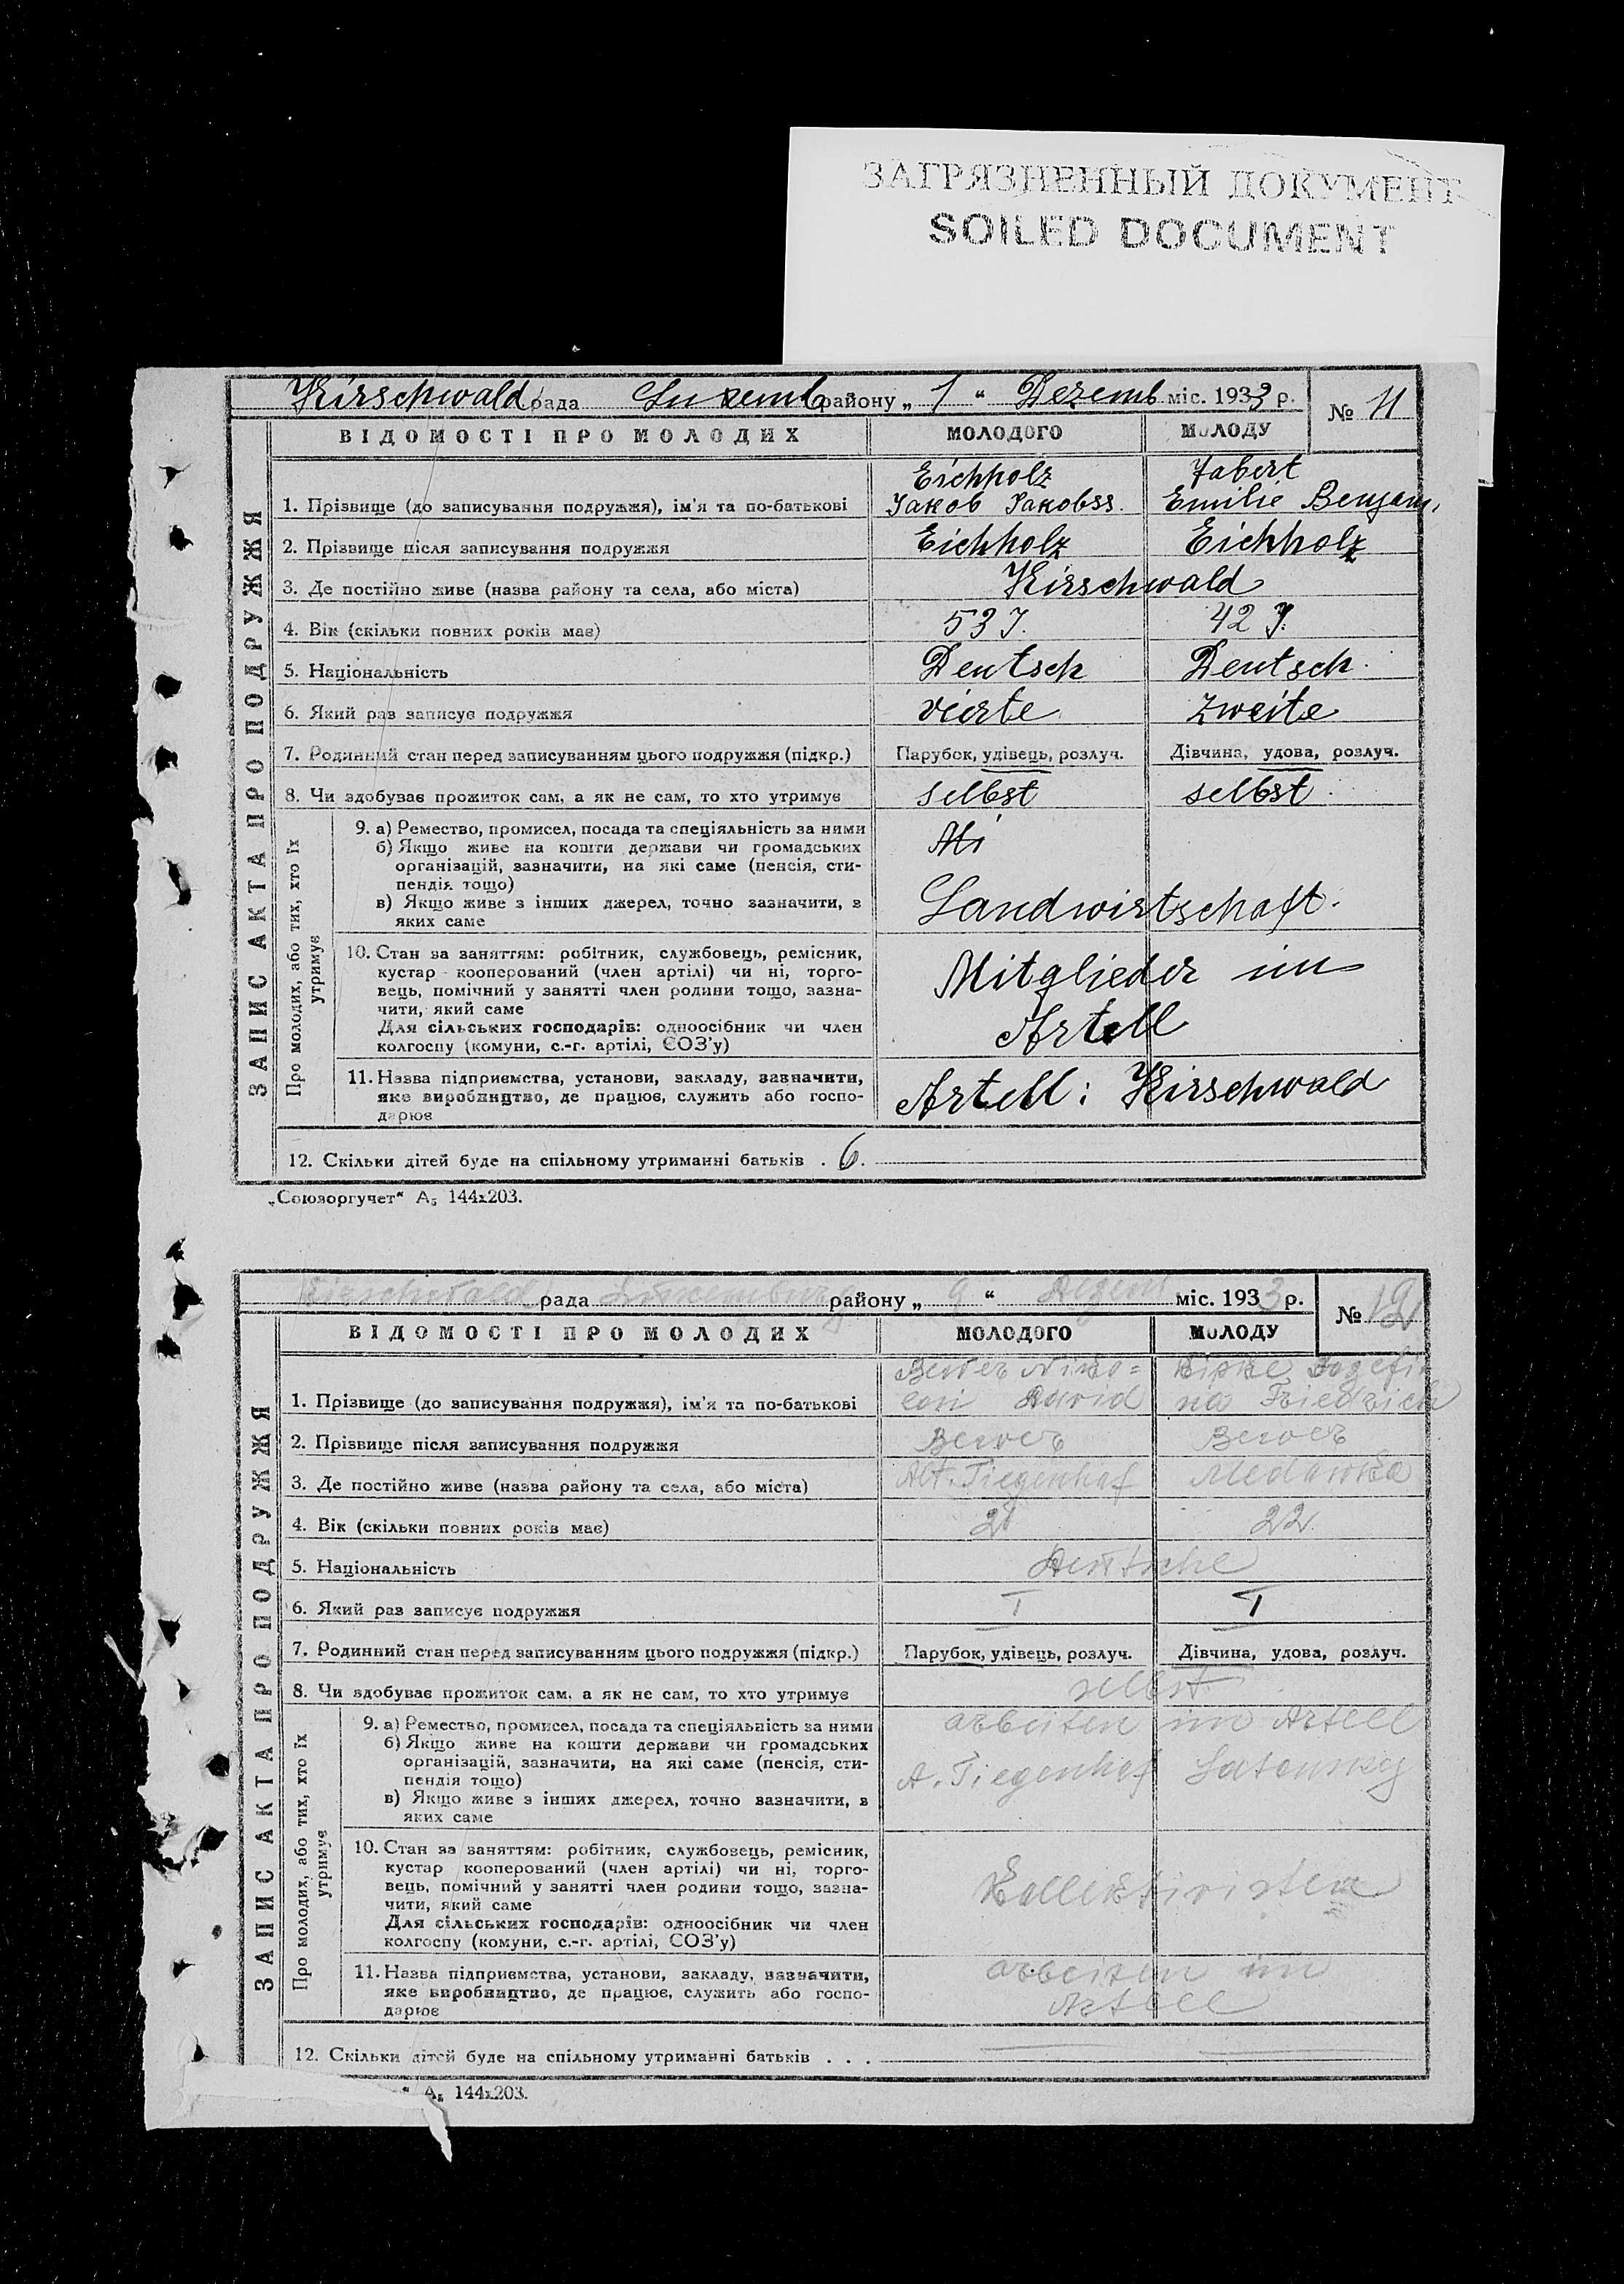 ЗАГРЯЗНЕННЫЙ ДОКУМЕНТ
SOILED DOCUMENT
Kirschwald рада Luxemb району „ 1 “ Dezemb міс. 1933 р.
№ 11
ВІДОМОСТІ ПРО МОЛОДИХ МОЛОДОГО МОЛОДУ
ЗАПИС АКТА ПРО ПОДРУЖЖЯ
Eichholz Jabert
1. Прізвище (до записування подружжя), ім'я та по-батькові Jakob Jakobss. Emilie Benjam.
2. Прізвище після записування подружжя Eichholz Eichholz
3. Де постійно живе (назва району та села, або міста) Kirschwald
4. Вік (скільки повних років має) 53 J. 42 J.
5. Національність Deutsch Deutsch
6. Який раз записує подружжя vierte zweite
7. Родинний стан перед записуванням цього подружжя (підкр.) Парубок, удівець, розлуч. Дівчина, удова, розлуч.
8. Чи здобуває прожиток сам, а як не сам, то хто утримує selbst selbst
Про молодих, або тих, хто їх утримує
9. а) Ремество, промисел, посада та спеціяльність за ними
б) Якщо живе на кошти держави чи громадських
організацій, зазначити, на які саме (пенсія, сти-
пендія тощо)
в) Якщо живе з інших джерел, точно зазначити, з
яких саме
Mi
Landwirtschaft.
10. Стан за заняттям: робітник, службовець, ремісник,
кустар кооперований (член артілі) чи ні, торго-
вець, помічний у занятті член родини тощо, зазна-
чити, який саме
Для сільських господарів: одноосібник чи член
колгоспу (комуни, с.-г. артілі, СОЗ'у)
Mitglieder im
Artell
11. Назва підприємства, установи, закладу, зазначити,
яке виробництво, де працює, служить або госпо-
дарює
Artell: Kirschwald
12. Скільки дітей буде на спільному утриманні батьків . 6.
„Союзоргучет“ А₅ 144х203.
Kirschwald рада Luxemburg району „ 9 “ Dezem міс. 1933 р.
№ 12
ВІДОМОСТІ ПРО МОЛОДИХ МОЛОДОГО МОЛОДУ
ЗАПИС АКТА ПРО ПОДРУЖЖЯ
Bewer Niko= Josefi
1. Прізвище (до записування подружжя), ім'я та по-батькові lai David na Friedrich
2. Прізвище після записування подружжя Bewer Bewer
3. Де постійно живе (назва району та села, або міста) Alt. Tiegenhof Medowka
4. Вік (скільки повних років має) 22
5. Національність Deutsche
6. Який раз записує подружжя I I
7. Родинний стан перед записуванням цього подружжя (підкр.) Парубок, удівець, розлуч. Дівчина, удова, розлуч.
8. Чи здобуває прожиток сам, а як не сам, то хто утримує selbst
Про молодих, або тих, хто їх утримує
9. а) Ремество, промисел, посада та спеціяльність за ними
б) Якщо живе на кошти держави чи громадських
організацій, зазначити, на які саме (пенсія, сти-
пендія тощо)
в) Якщо живе з інших джерел, точно зазначити, з
яких саме
arbeiten im Artell
A. Tiegenhof
10. Стан за заняттям: робітник, службовець, ремісник,
кустар кооперований (член артілі) чи ні, торго-
вець, помічний у занятті член родини тощо, зазна-
чити, який саме
Для сільських господарів: одноосібник чи член
колгоспу (комуни, с.-г. артілі, СОЗ'у)
Kollektivisten
11. Назва підприємства, установи, закладу, зазначити,
яке виробництво, де працює, служить або госпо-
дарює
arbeiten im
Artell
12. Скільки дітей буде на спільному утриманні батьків . . .
“ А₅ 144х203.